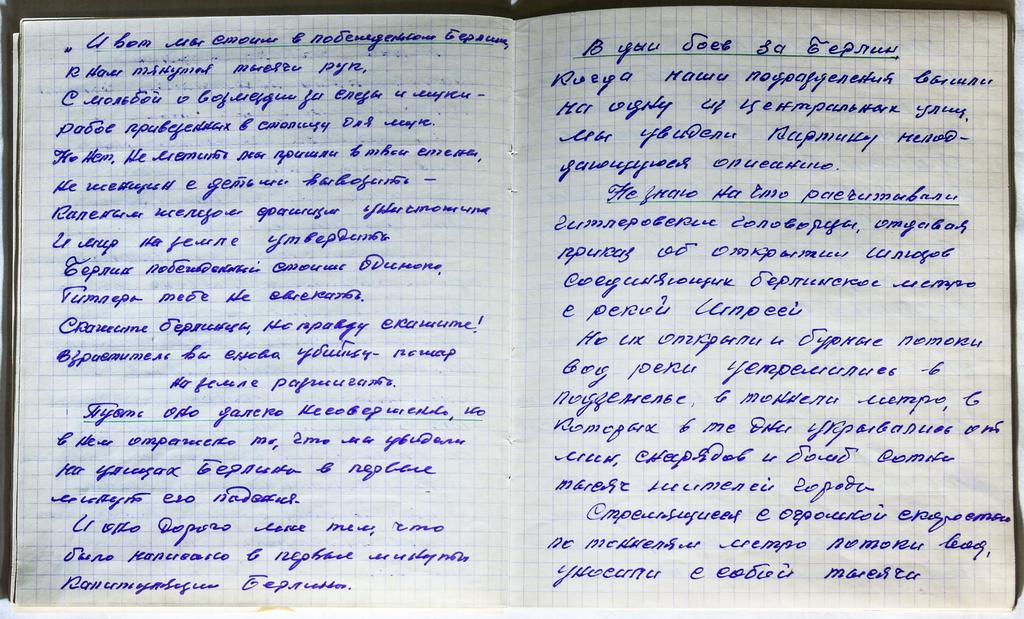 „И вот мы стоим в побежденном Берлине,
К нам тянутся тысячи рук,
С мольбой о возмездии за слезы и муки -
рабов приведенных в столицу для мук.
Но нет, не мстить мы пришли в твои стены,
не женщин с детьми выводить —
Каленым железом фашизм уничтожить
И мир на земле утвердить
Берлин побежденный стоишь одиноко,
Гитлера тебе не сыскать.
Скажите берлинцы, но правду скажите!
Взрастите ль вы снова убийцу - пожар
на земле разжигать.
Пусть оно далеко несовершенно, но
в нем отражено то, что мы увидели
на улицах Берлина в первые
минуты его падения.
И оно дорого мне тем, что
было написано в первые минуты
Капитуляции Берлина.
В дни боев за Берлин,
Когда наши подразделения вышли
на одну из центральных улиц,
мы увидели Картину непод-
дающуюся описанию.
Не знаю на что расчитывали
гитлеровские головорезы, отдавая
приказ об открытии шлюзов
соединяющих берлинское метро
с рекой Шпреей
Но их открыли и бурные потоки
вод реки устремились в
подземелье, в тоннели метро, в
Которых в те дни укрывались от
мин, снарядов и бомб сотни
тысяч жителей города
Стремящиеся с огромной скоростью
по тоннелям метро потоки вод,
уносили с собой тысячи